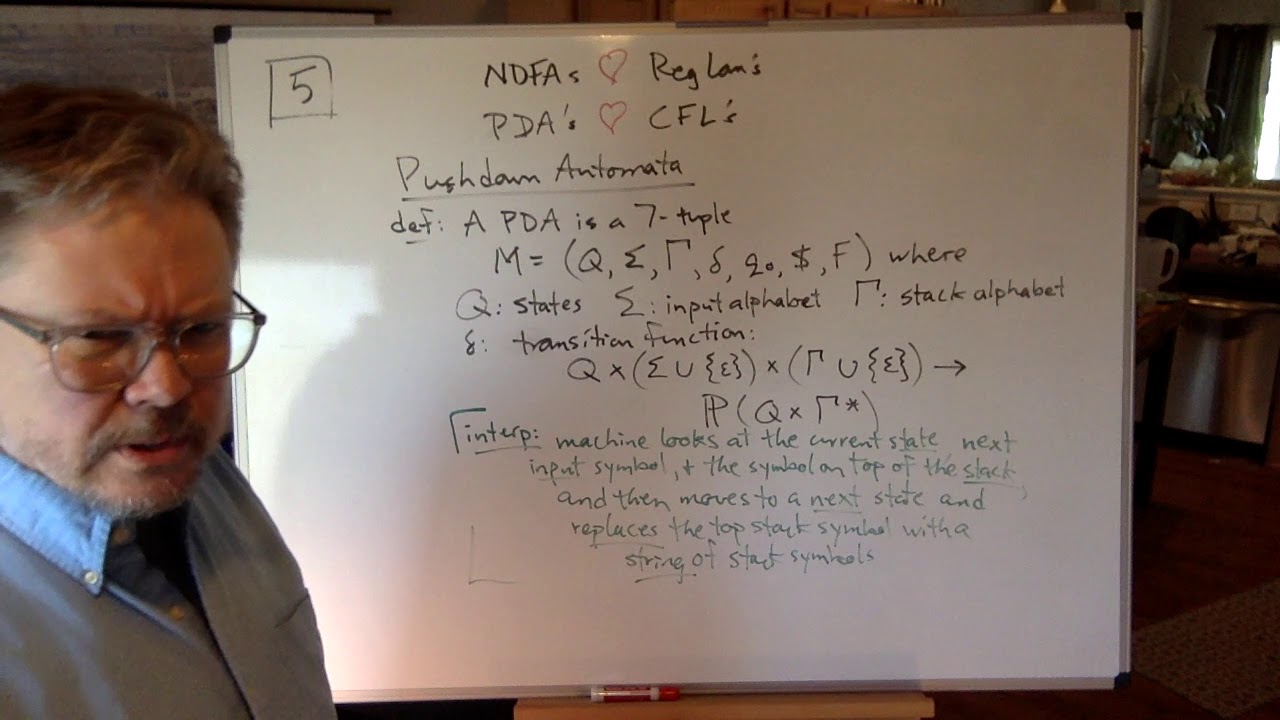 5
NDFAs ♡ Reg Lan's
PDA's ♡ CFL's
Pushdown Automata
def: A PDA is a 7-tuple
M = (Q, Σ, Γ, δ, q₀, $, F) where
Q: states Σ: input alphabet Γ: stack alphabet
δ: transition function:
Q × (Σ ∪ {ε}) × (Γ ∪ {ε}) →
ℙ(Q × Γ*)
interp: machine looks at the current state next
input symbol, + the symbol on top of the stack
and then moves to a next state and
replaces the top stack symbol with a
string of stack symbols